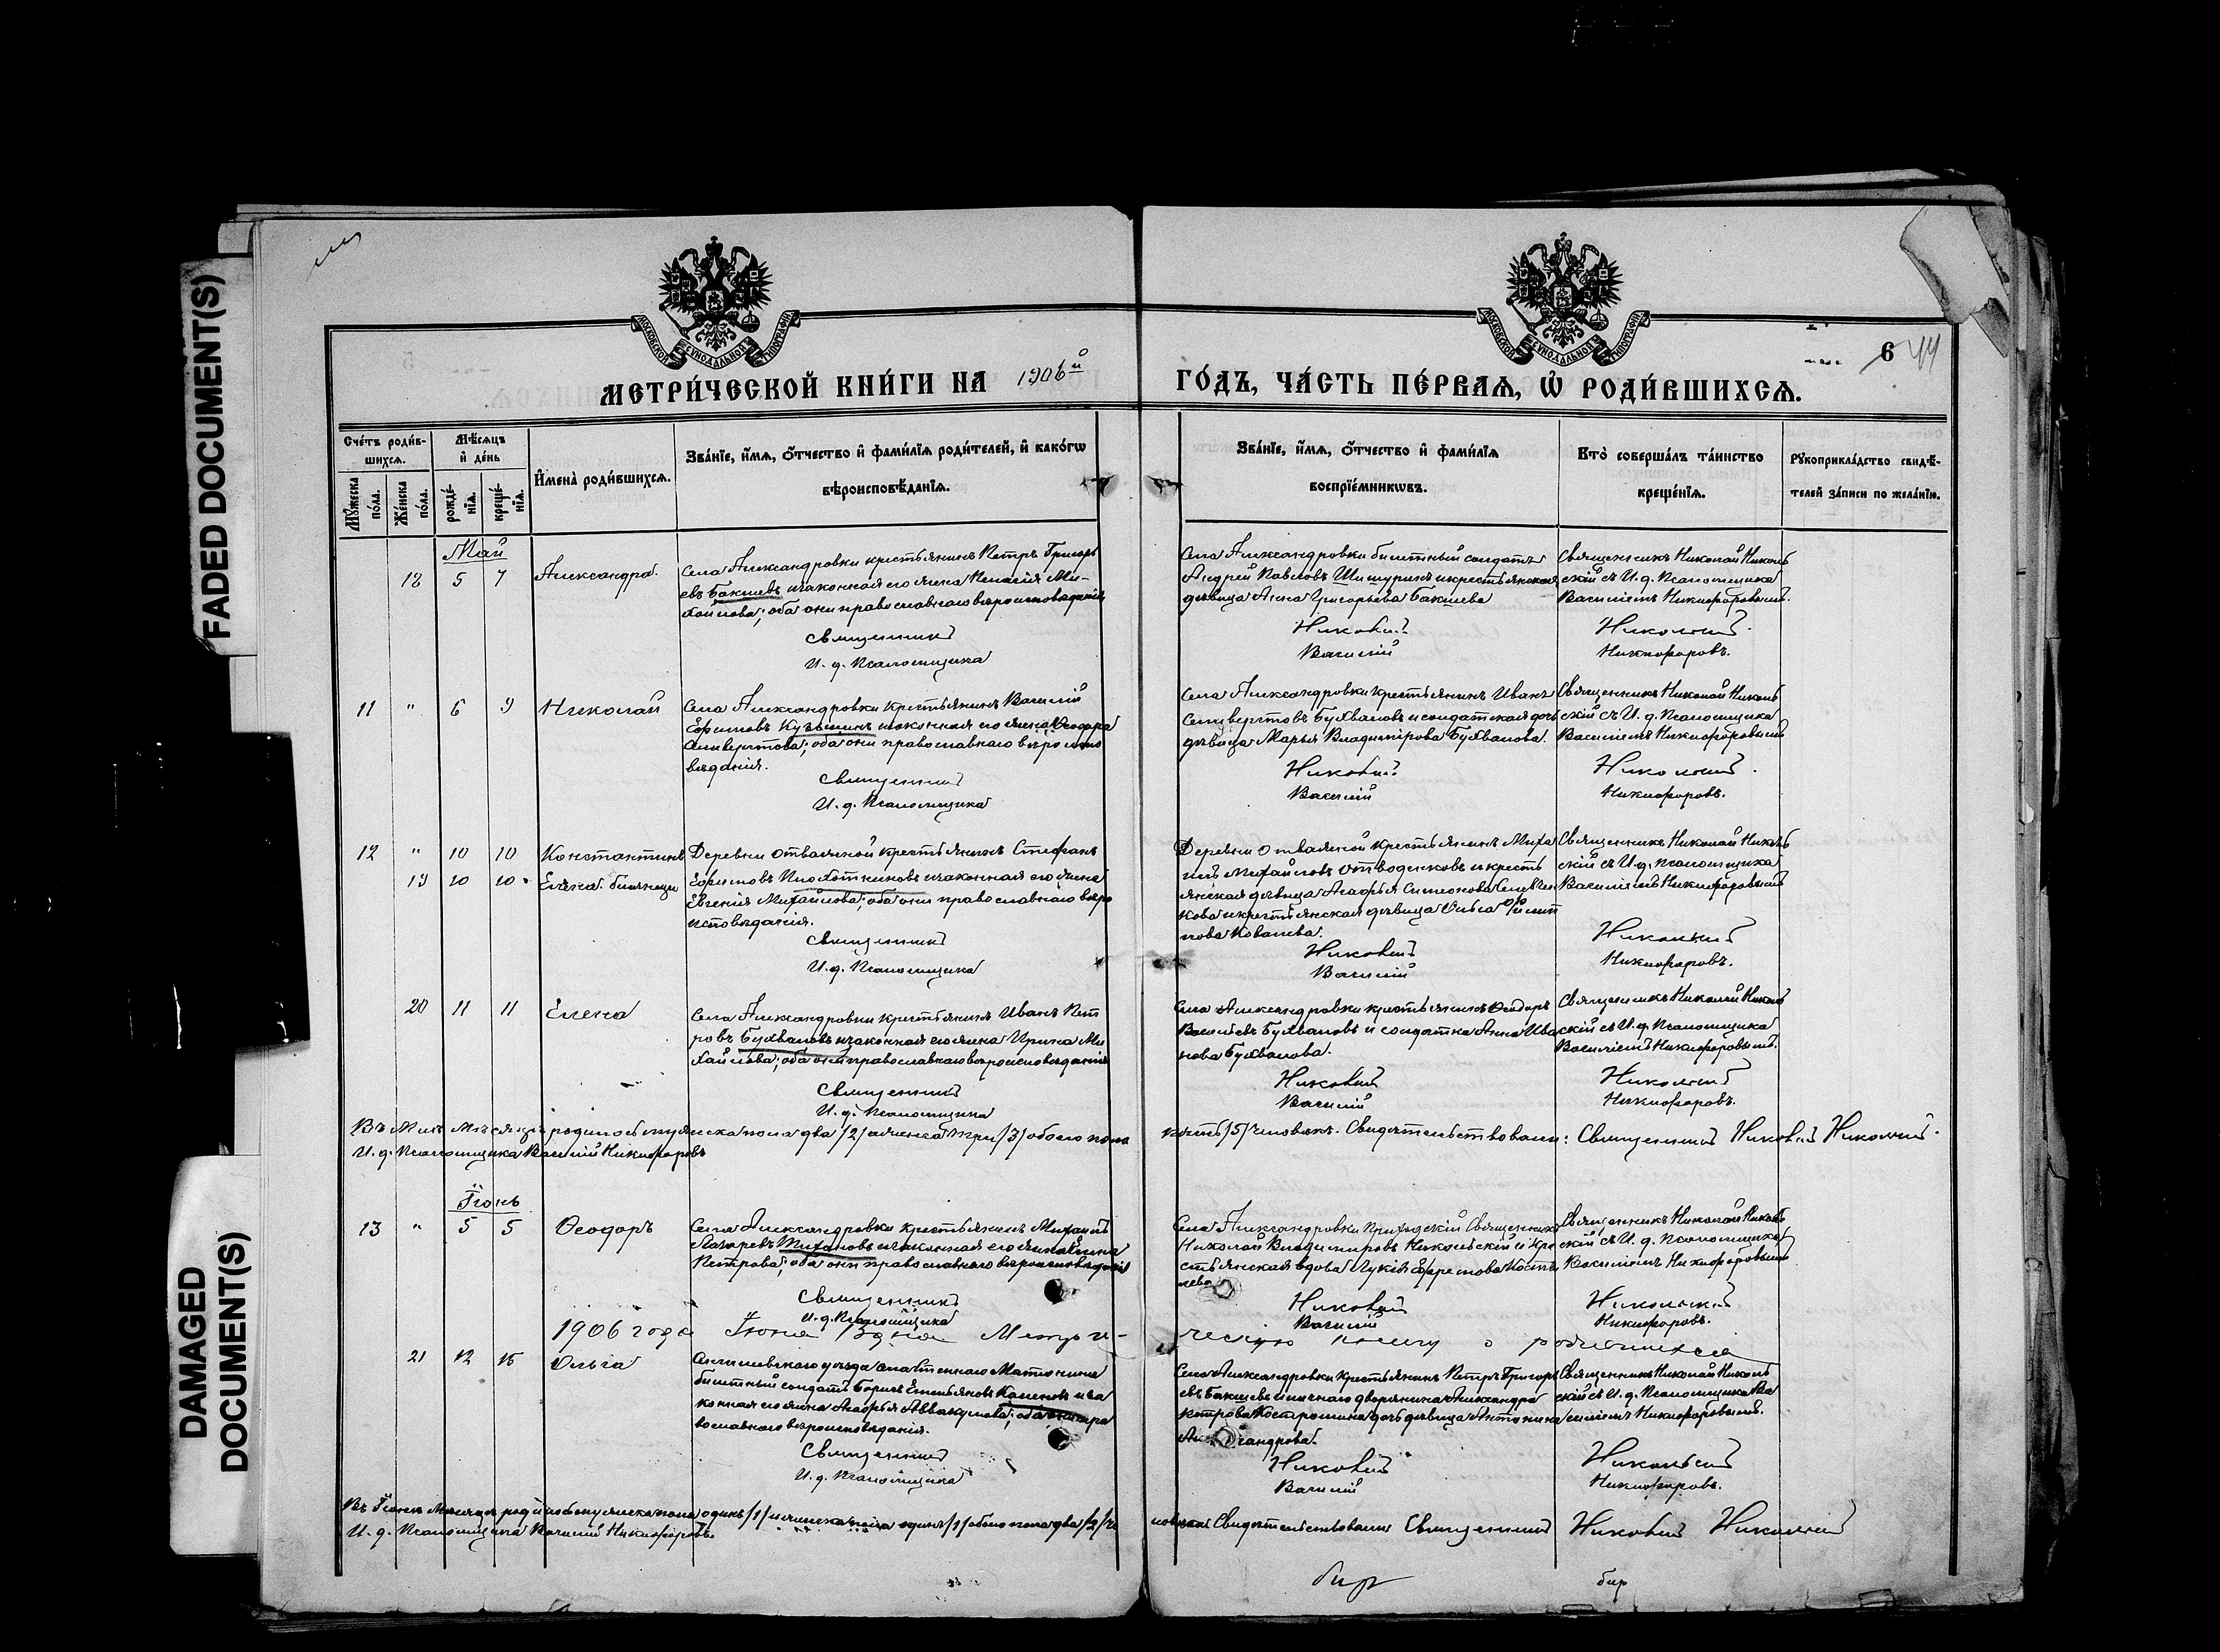 FADED DOCUMENT(S)
DAMAGED
DOCUMENT(S)
МОСКОВСКОЙ СѴНОДАЛЬНОЙ ТИПОГРАФІИ
МОСКОВСКОЙ СѴНОДАЛЬНОЙ ТИПОГРАФІИ
6 44
МЕТРИ́ЧЕСКОЙ КНИ́ГИ НА 1906й ГО́ДЪ, ЧА́СТЬ ПЕ́РВАѦ, Ѡ҆ РОДИ́ВШИХСѦ.
Сче́тъ роди́в-
шихсѧ.
Мꙋ́жеска по́ла.
Же́нска по́ла.
Мѣ́сѧцъ
и҆ де́нь
рожде́-
нїѧ.
креще́-
нїѧ.
И҆мена̀ роди́вшихсѧ.
Зва́нїе, и҆́мѧ, ѻ҆́тчество и҆ фами́лїѧ роди́телей, и҆ како́гѡ
вѣроисповѣ́данїѧ.
Зва́нїе, и҆́мѧ, ѻ҆́тчество и҆ фами́лїѧ
воспрїе́мникѡвъ.
Кто̀ соверша́лъ та́инство
креще́нїѧ.
Рꙋкоприкла́дство свидѣ́-
телей за́писи по жела́нїю.
Май
18 5 7 Александра.
Села Александровки крестьянинъ Петръ Григорь
евъ Бакшевъ и законная его жена Пелагія Ми-
хайлова; оба они православнаго вѣроисповѣданія
Священникъ
И. д. Псаломщика
Села Александровки билетный солдатъ
Андрей Павловъ Шишуринъ и крестьянская
дѣвица Анна Григорьева Бакшева
Николай
Василій
Священникъ Николай Николь
скій съ И. д. Псаломщика
Василіемъ Никифоровымъ.
Никольскій.
Никифоровъ.
11 " 6 9 Николай
Села Александровки крестьянинъ Василій
Ефимовъ Кузьминъ и законная его жена Ѳеодора
Селивертова; оба они православнаго вѣроиспо
вѣданія.
Священникъ
И. д. Псаломщика
Села Александровки крестьянинъ Иванъ
Селивертовъ Бухваловъ и солдатская дочь
дѣвица Марья Владимірова Бухвалова.
Николай
Василій
Священникъ Николай Николь
скій съ И. д. Псаломщика
Василіемъ Никифоровымъ
Никольскій.
Никифоровъ.
12 " 10 10 Константинъ
19 10 10 Елена близнецы
Деревни Отвалиной крестьянинъ Стефанъ
Ефимовъ Плохотниковъ и законная его жена
Евгенія Михайлова; оба они православнаго вѣро
исповѣданія.
Священникъ
И. д. Псаломщика
Деревни Отвалиной крестьянинъ Миха
илъ Михайловъ Отводенковъ и кресть
янская дѣвица Агафья Симеонова
кова и крестьянская дѣвица Ольга
пова Ковалева.
Николай
Василій
Священникъ Николай Николь
скій съ И. д. Псаломщика
Василіемъ Никифоровымъ
Никольскій
Никифоровъ.
20 11 11 Елена
Села Александровки крестьянинъ Иванъ Пет
ровъ Бухваловъ и законная его жена Ирина Ми
хайлова; оба они православнаго вѣроисповѣданія
Священникъ
И. д. Псаломщика
Села Александровки крестьянинъ Ѳеодоръ
Васильевъ Бухваловъ и солдатка Анна Ива
нова Бухвалова.
Николай
Василій
Священникъ Николай Николь
скій съ И. д. Псаломщика
Василіемъ Никифоровымъ.
Никольскій
Никифоровъ.
Въ Маѣ мѣсяцѣ родилось мужеска пола два /2/ и женска три /3/ обоего пола пять /5/ человѣкъ. Свидѣтельствовали: Священникъ Николай Никольскій.
И. д. Псаломщика Василій Никифоровъ
Іюнь
13 " 5 5 Ѳеодоръ
Села Александровки крестьянинъ Михаилъ
Лазаревъ Тихановъ и законная его жена
Петрова; оба они православнаго вѣроисповѣданія
Священникъ
И. д. Псаломщика
Села Александровки Приходскій Священникъ
Николай Владиміровъ Никольскій и кре
стьянская вдова Лукія Ефремова Косты
лева
Николай
Василій
Священникъ Николай Николь
скій съ И. д. Псаломщика
Василіемъ Никифоровымъ
Никольскій
Никифоровъ.
1906 года Іюня 13 дня Метри-ческую книгу о родившихся
21 12 15 Ольга
уѣзда села Степнаго Матюнина
билетный солдатъ Борисъ Емельяновъ и за
конная его жена Агафья Аввакумова; оба они пра
вославнаго вѣроисповѣданія.
Священникъ
И. д. Псаломщика
Села Александровки крестьянинъ Петръ Григорь
евъ Бакшевъ и личнаго дворянина Александра
Петрова Костромина дочь дѣвица Антонина
Александрова.
Николай
Василій
Священникъ Николай Николь
скій съ И. д. Псаломщика Ва
силіемъ Никифоровымъ.
Никольскій
Никифоровъ.
Въ Іюнѣ мѣсяцѣ родилось мужеска пола одинъ /1/ и женска пола одинъ /1/ обоего пола два /2/ человѣка. Свидѣтельствовали: Священникъ Николай Никольскій
И. д. Псаломщика Василій Никифоровъ.